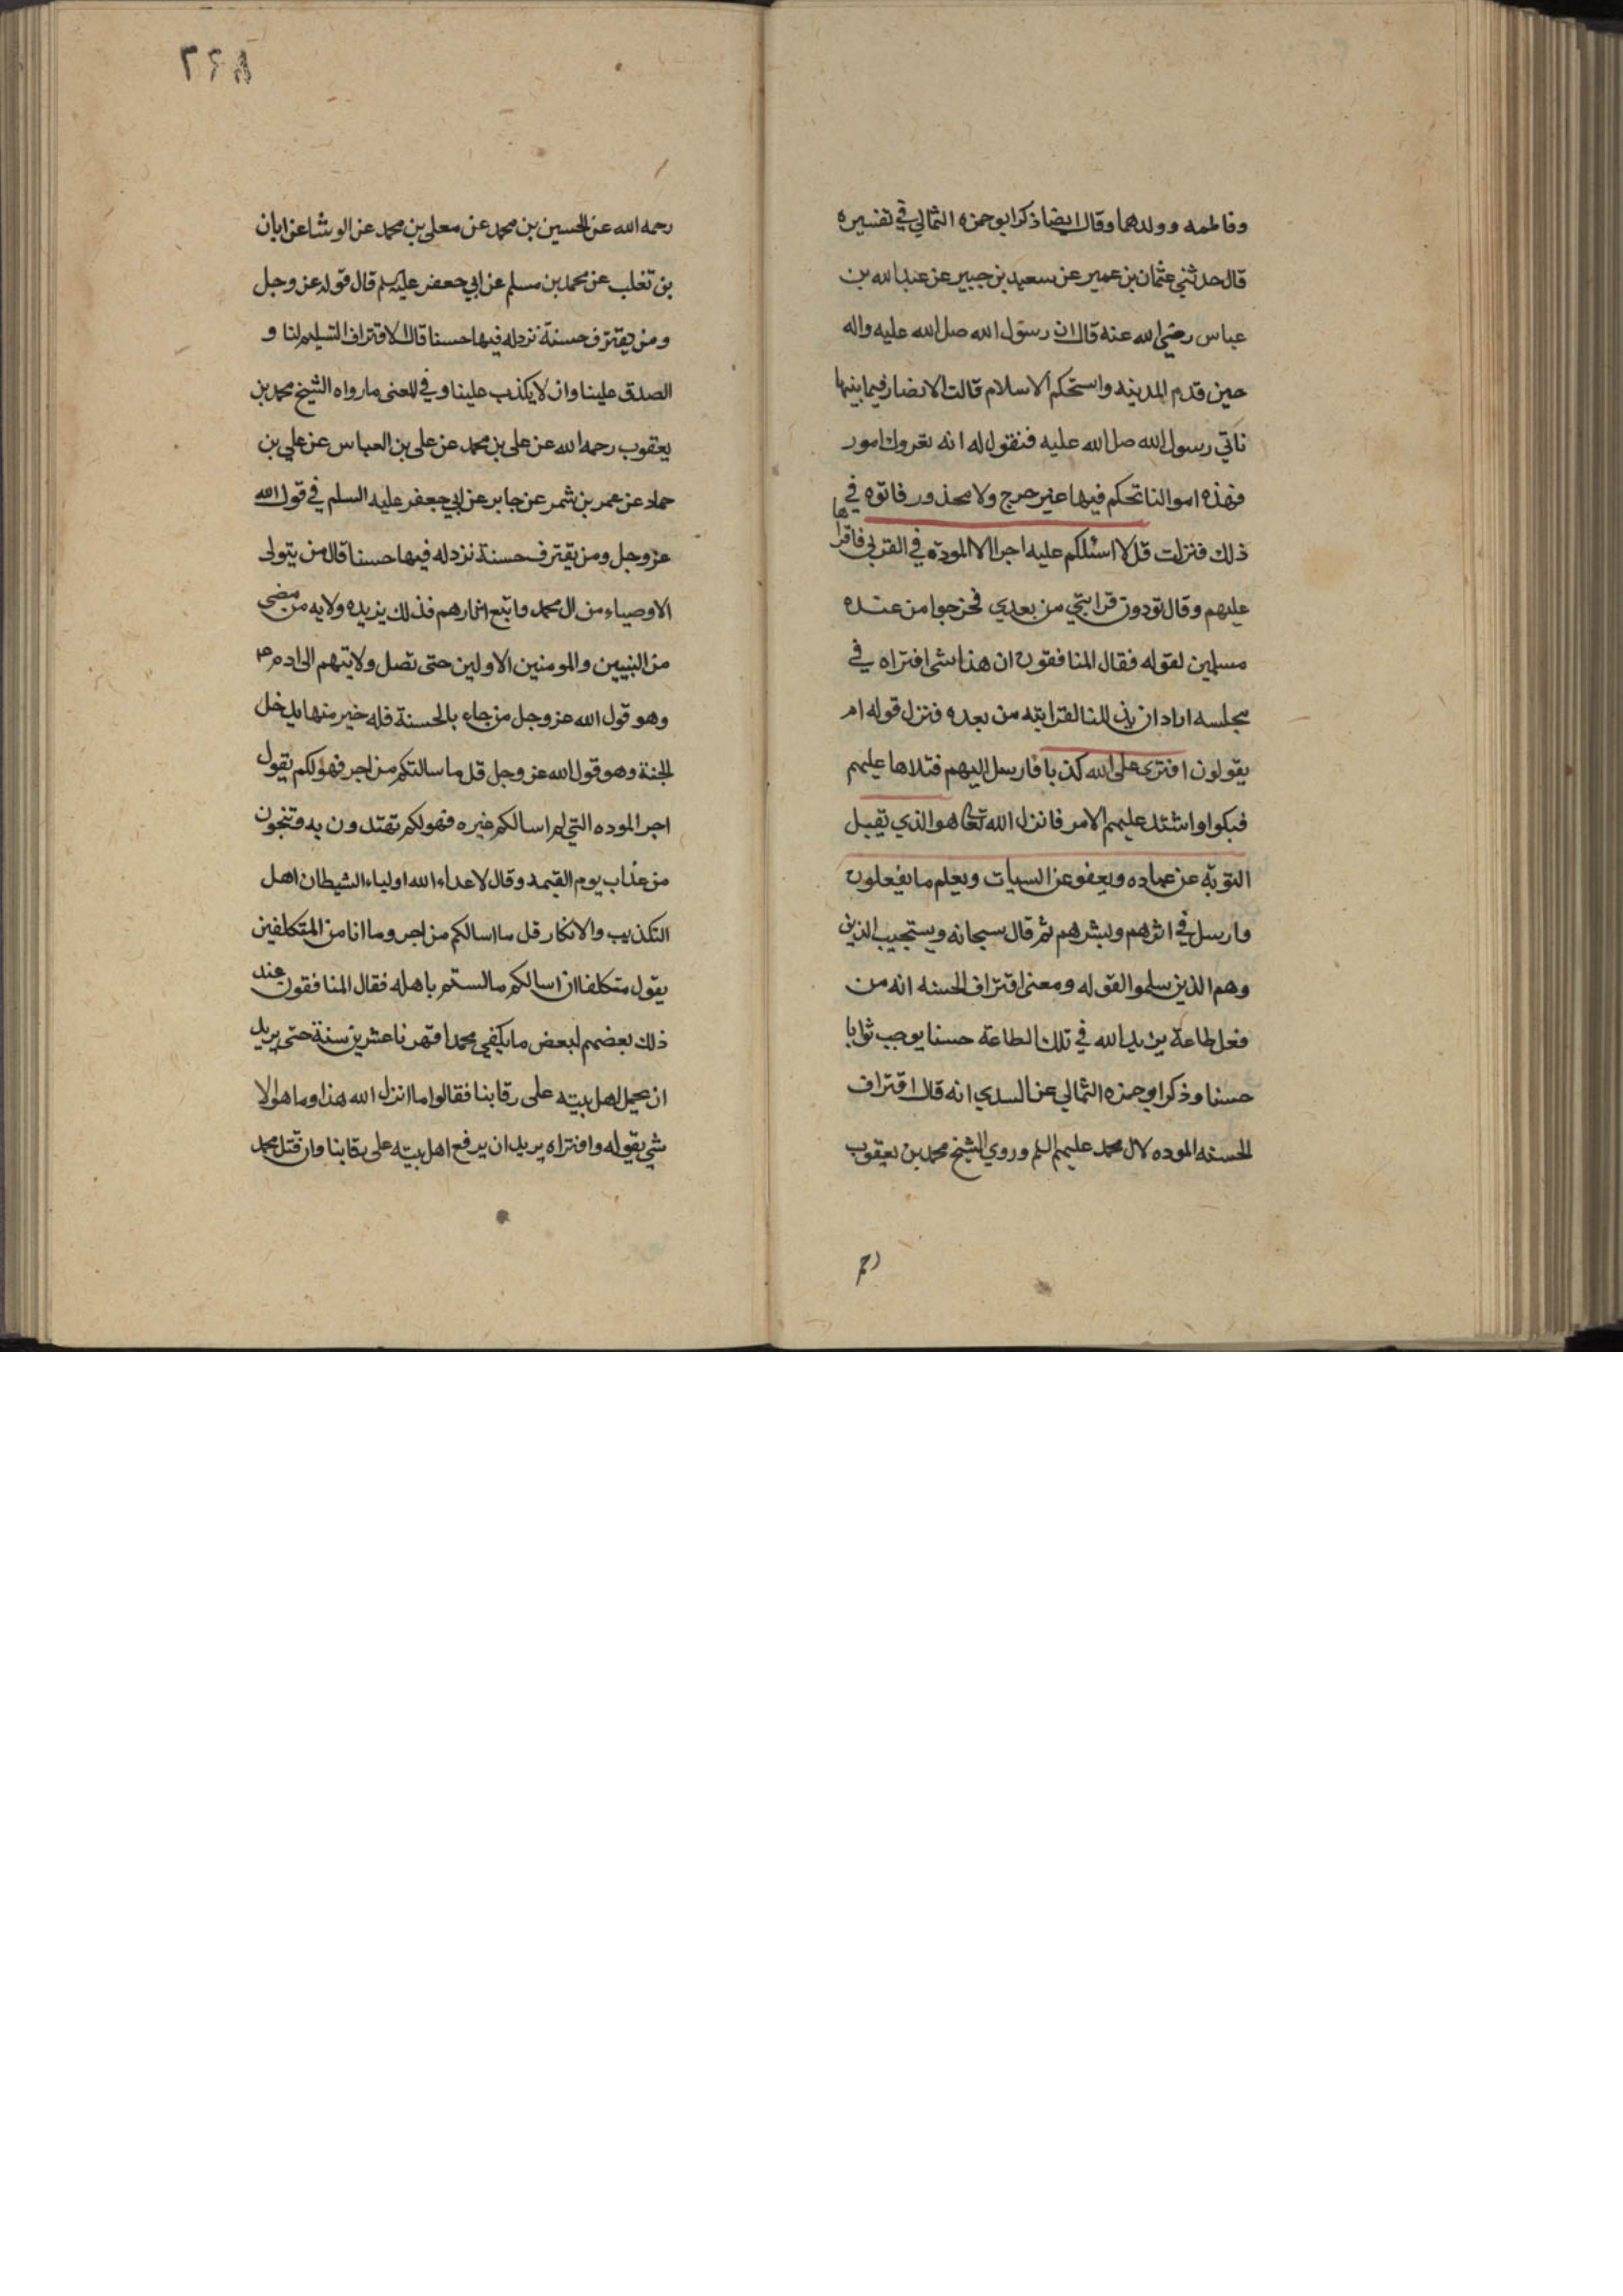 وفاطمه وولدهما وقال ايضا ذكر ابو حمزه الثمالي في تفسيره
قال حدثني عثمان بن عمير عن سعيد بن جبير عن عبد الله بن
عباس رضي الله عنه قال ان رسول الله صل الله عليه واله
حين قدم المدينه واستحكم الاسلام قالت الانصار فيما بينها
ناتي رسول الله صل الله عليه فنقول له انه تعروك امور
فهذه اموالنا تحكم فيها غير حرج ولا محذور فاتوه في
ذلك فنزلت قل لا اسئلكم عليه اجرا الا المودة في القربى فاقراها
عليهم وقال تودون قرابتي من بعدي فخرجوا من عنده
مسلمين لقوله فقال المنافقون ان هذا شى افتراه في
مجلسه اراد ان يذللنا لقرابته من بعده فنزل قوله ام
يقولون افترى على الله كذبا فارسل اليهم فتلاها عليهم
فبكوا واشتد عليهم الامر فانزل الله تعالى هو الذي تقبل
التوبة عن عباده ويعفو عن السيات ويعلم ما يفعلون
وارسل في اثرهم وبشرهم ثم قال سبحانه ويستجيب الذين
وهم الذين سلموا لقوله ومعنى اقتراف الحسنه انه من
فعل طاعة يزيد الله في تلك الطاعة حسنا يوجب ثوابا
حسنا وذكر ابو حمزه الثمالي عن السدي انه قال اقتراف
الحسنه الموده لال محمد عليهم السلم وروي الشيخ محمد بن يعقوب
رحم
٢٢٨
رحمه الله عن الحسين بن محمد عن معلى بن محمد عن الوشا عن ابان
بن تغلب عن محمد بن مسلم عن ابي جعفر عليه سلم قال قوله عز وجل
ومن يقترف حسنة نزد له فيها حسنا قال الاقتراف التسليم لنا و
الصدق علينا وان لا يكذب علينا وفي المعنى ما رواه الشيخ محمد بن
يعقوب رحمه الله عن على بن محمد عن على بن العباس عن علي بن
حماد عن عمر بن شمر عن جابر عن ابي جعفر عليه السلم في قول الله
عز وجل ومن يقترف حسنة نزد له فيها حسنا قال من يتولى
الاوصياء من ال محمد واتبع اثارهم فذلك يزيده ولايه من مضى
من النبيين والمومنين الاولين حتى تصل ولايتهم الى ادم ع
وهو قول الله عز وجل من جاء بالحسنة فله خير منها يدخل
الجنة وهو قول الله عز وجل قل ما سالتكم من اجر فهو لكم يقول
اجر الموده التي لم اسالكم غيره فهو لكم تهتدون به وتنجون
من عذاب يوم القيمه وقال لاعداء الله اولياء الشيطان اهل
التكذيب والانكار قل ما اسالكم من اجر وما انا من المتكلفين
يقول متكلفا ان اسالكم ما لستم باهله فقال المنافقون عند
ذلك بعضهم لبعض ما يكفي محمدا قهرنا عشرين سنة حتى يريد
ان يحمل اهل بيته على رقابنا فقالوا ما انزل الله هذا وما هو الا
شي يقوله وافتراه يريد ان يرفع اهل بيته على رقابنا وان قتل محمد